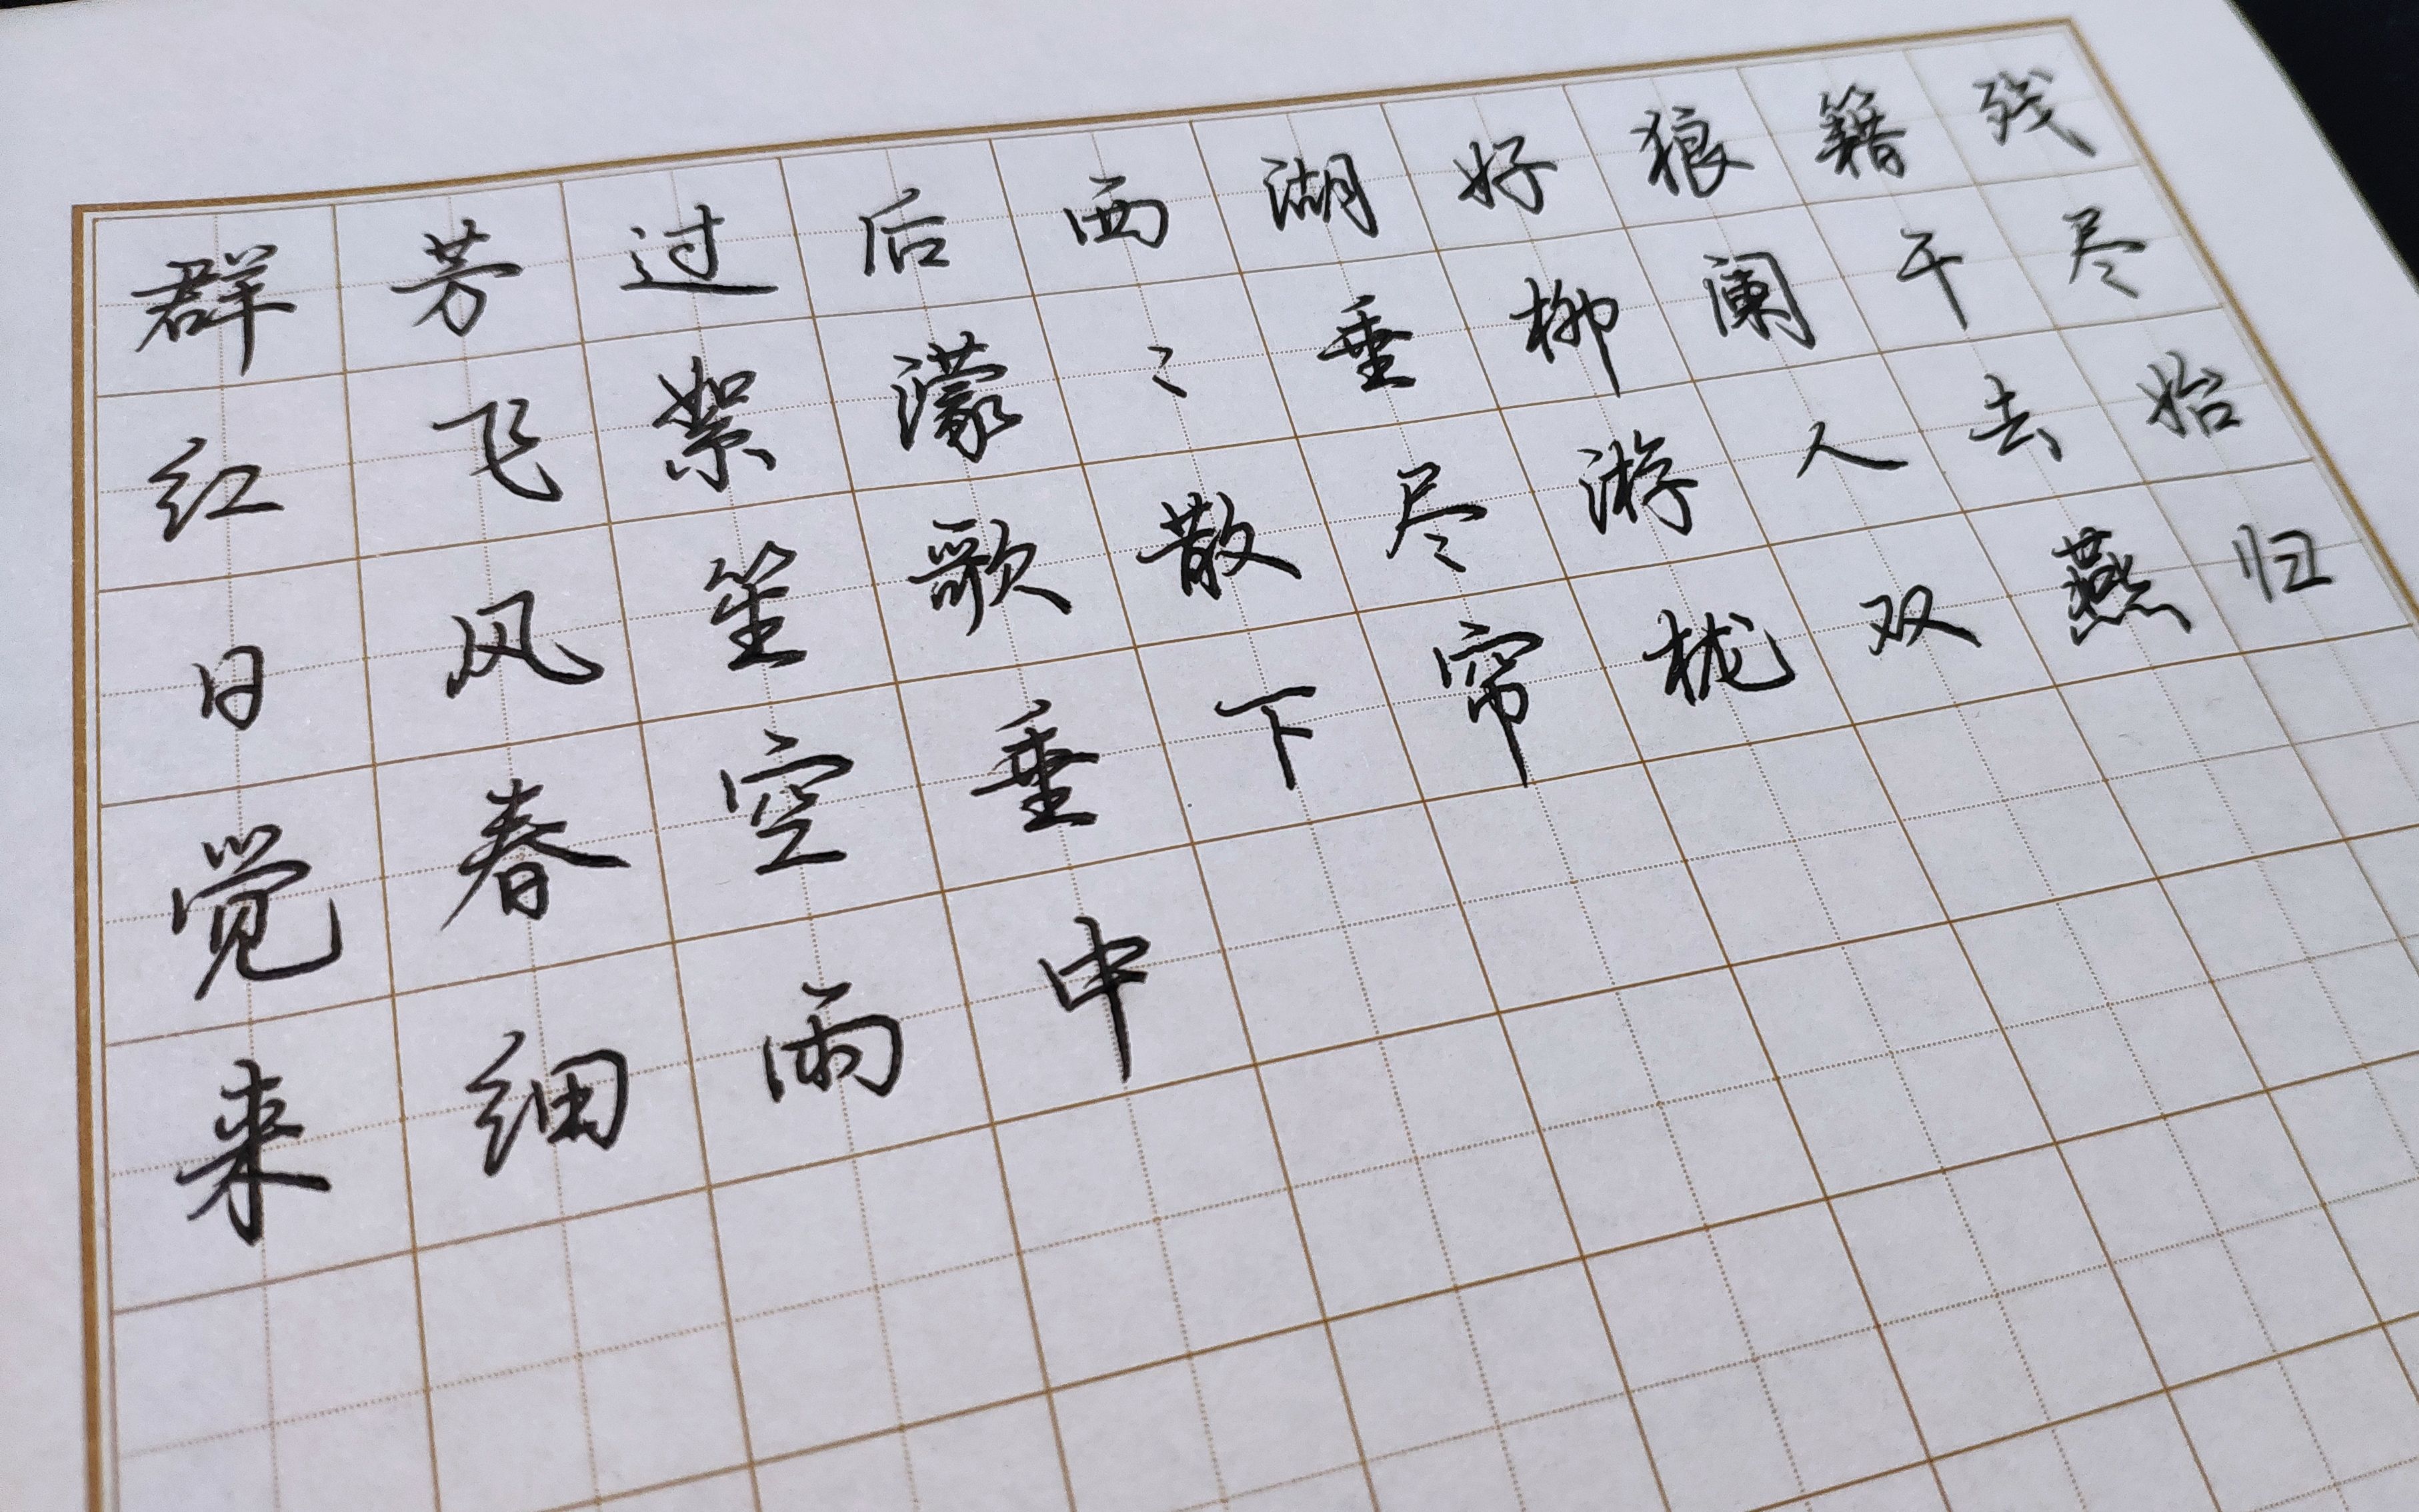 群芳过后西湖好狼籍残
红飞絮濛〻垂柳阑干尽
日风笙歌散尽游人去始
觉春空垂下帘栊双燕归
来细雨中